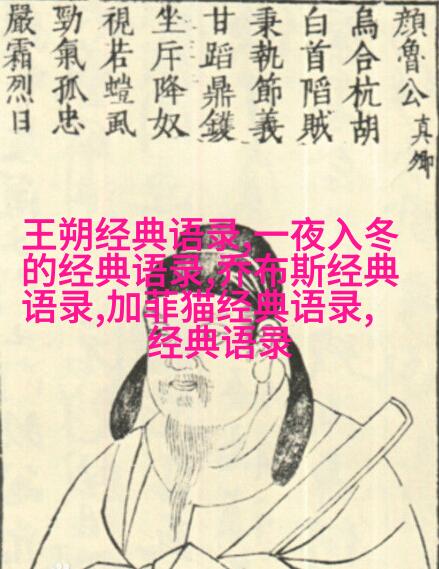 顔魯公真卿
烏合杭胡
白首陷賊
秉執節義
甘蹈鼎鑊
坐斥降奴
視若螘虱
勁氣孤忠
嚴霜烈日
王朔经典语录,一夜入冬
的经典语录,乔布斯经典
语录,加菲猫经典语录,
经典语录